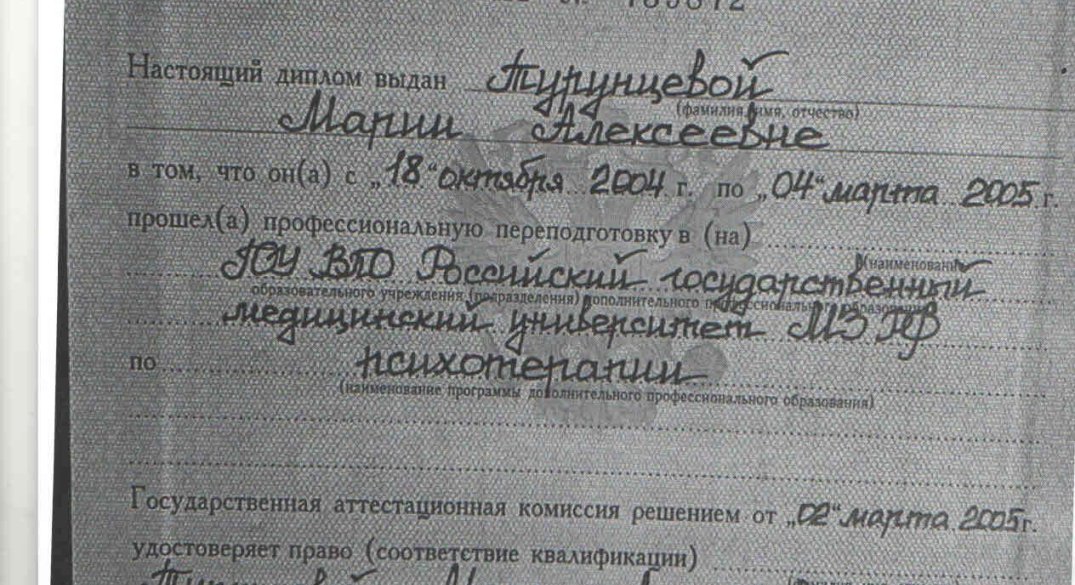 Настоящий диплом выдан Турунцевой
(фамилия, имя, отчество)
Марии Алексеевне
в том, что он(а) с „18“ октября 2004 г. по „04“ марта 2005 г.
прошел(а) профессиональную переподготовку в (на)
(наименование
ГОУ ВПО Российский государственный
образовательного учреждения (подразделения) дополнительного профессионального образования)
медицинский университет МЗ РФ
по психотерапии
(наименование программы дополнительного профессионального образования)
Государственная аттестационная комиссия решением от „02“ марта 2005 г.
удостоверяет право (соответствие квалификации)